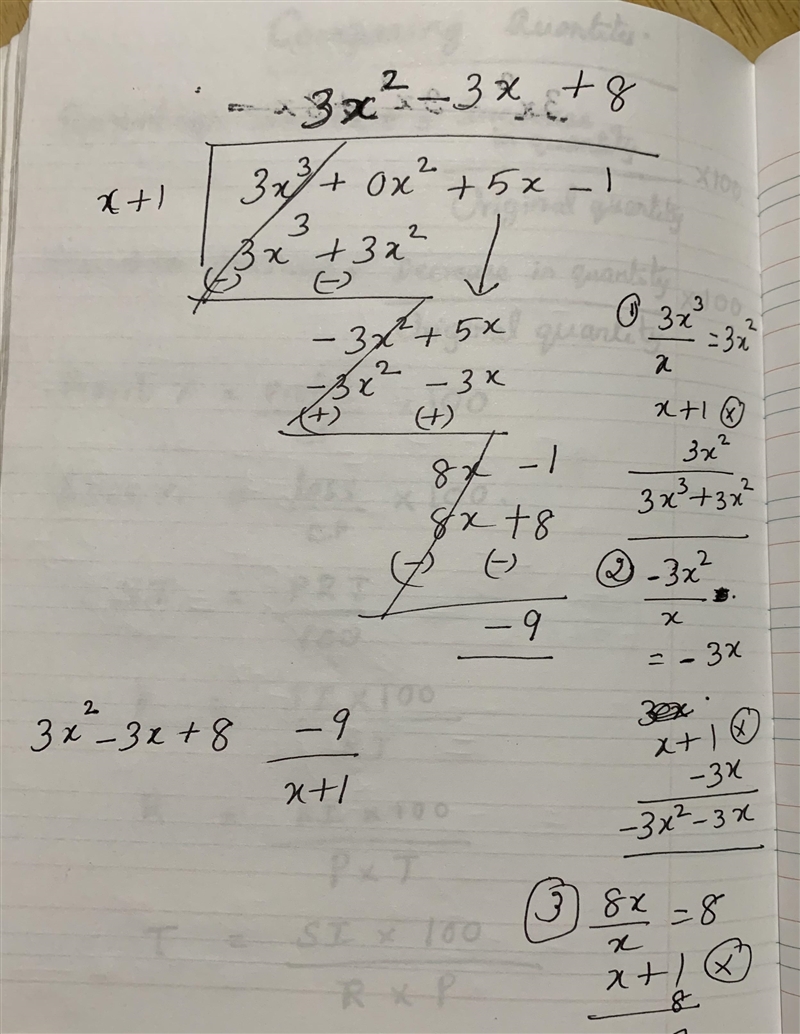 3x² - 3x + 8
x+1
3x³ + 0x² + 5x - 1
3x³ + 3x²
(-) (-)
- 3x² + 5x
- 3x² - 3x
(+) (+)
8x - 1
8x + 8
(-) (-)
- 9
3x² - 3x + 8 -9/x+1
① 3x³/x = 3x²
x+1 ⓧ
3x²
3x³+3x²
② -3x²/x
= - 3x
x+1 ⓧ
-3x
-3x² - 3x
③ 8x/x = 8
x+1 ⓧ
8